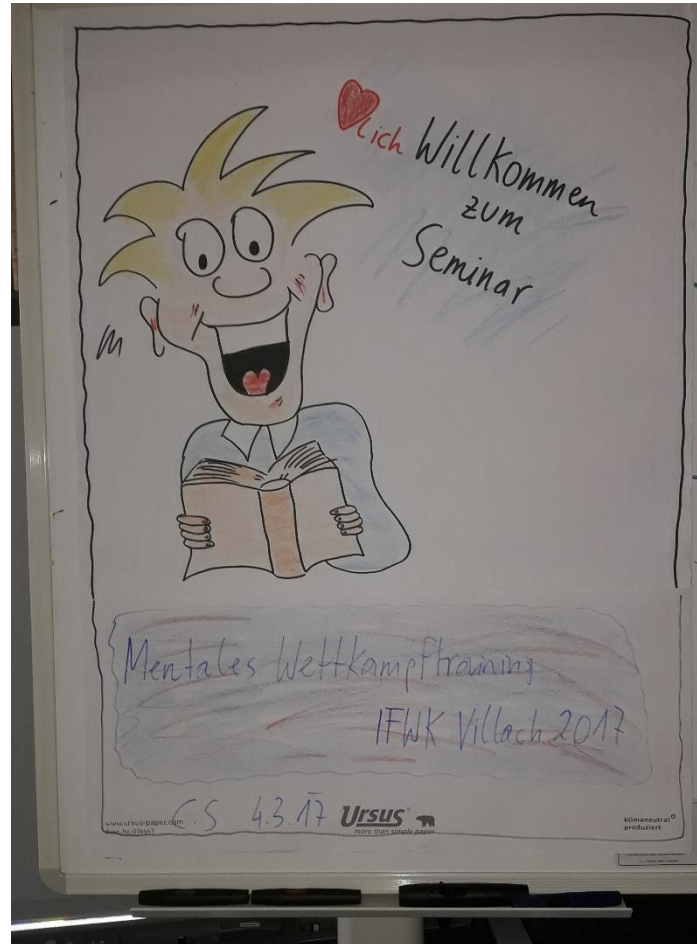 lich Willkommen
zum
Seminar
Mentales Wettkampftraining
IFWK Villach 2017
C.S 4.3.17
www.ursus-paper.com
Ursus®
more than simple paper
klimaneutral
produziert